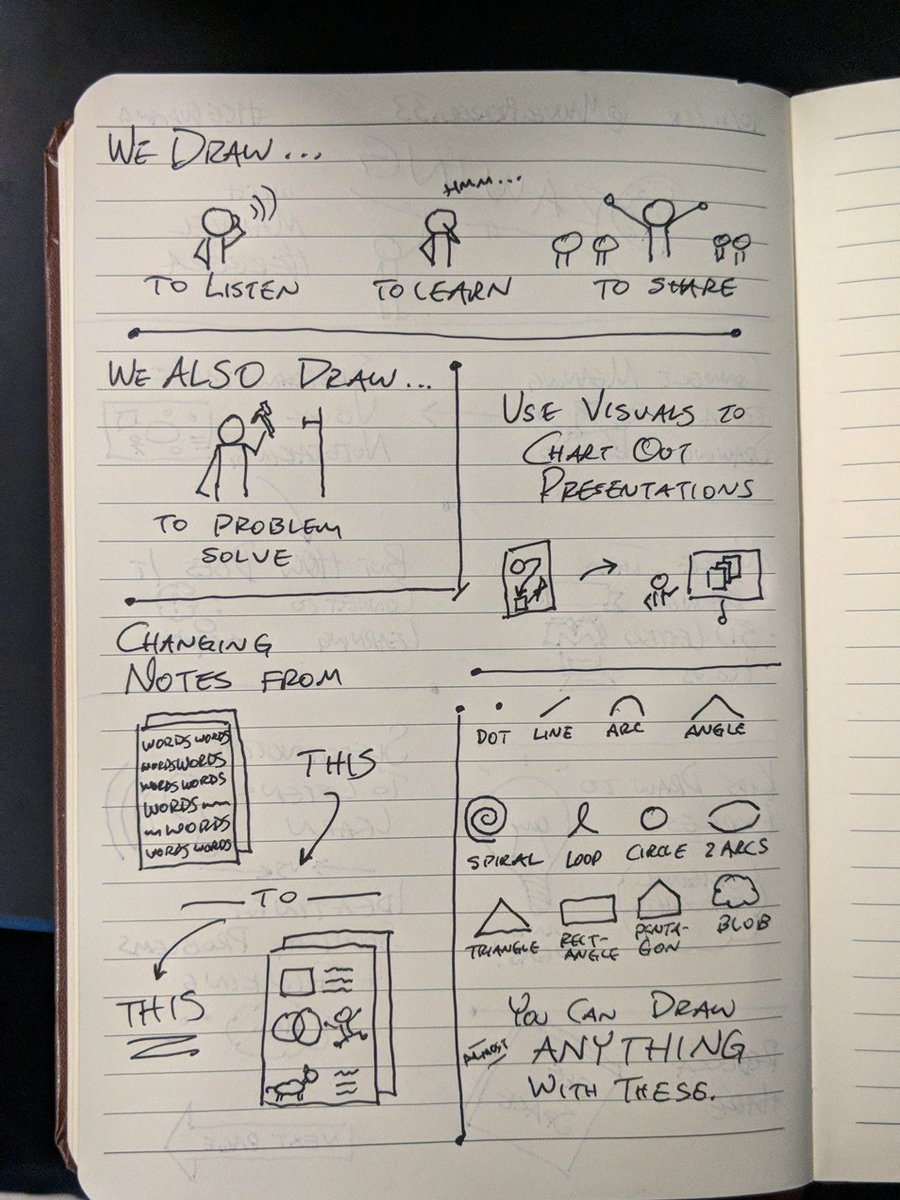 WE DRAW...
HMM...
TO LISTEN
TO LEARN
TO SHARE
WE ALSO DRAW...
TO PROBLEM
SOLVE
USE VISUALS TO
CHART OUT
PRESENTATIONS
CHANGING
NOTES FROM
WORDS WORDS
WORDS WORDS
WORDS WORDS
WORDS
WORDS
WORDS WORDS
THIS
TO
THIS
DOT LINE ARC ANGLE
SPIRAL LOOP CIRCLE 2 ARCS
TRIANGLE
RECT-
ANGLE
PENTA-
GON
BLOB
YOU CAN DRAW
ALMOST ANYTHING
WITH THESE.